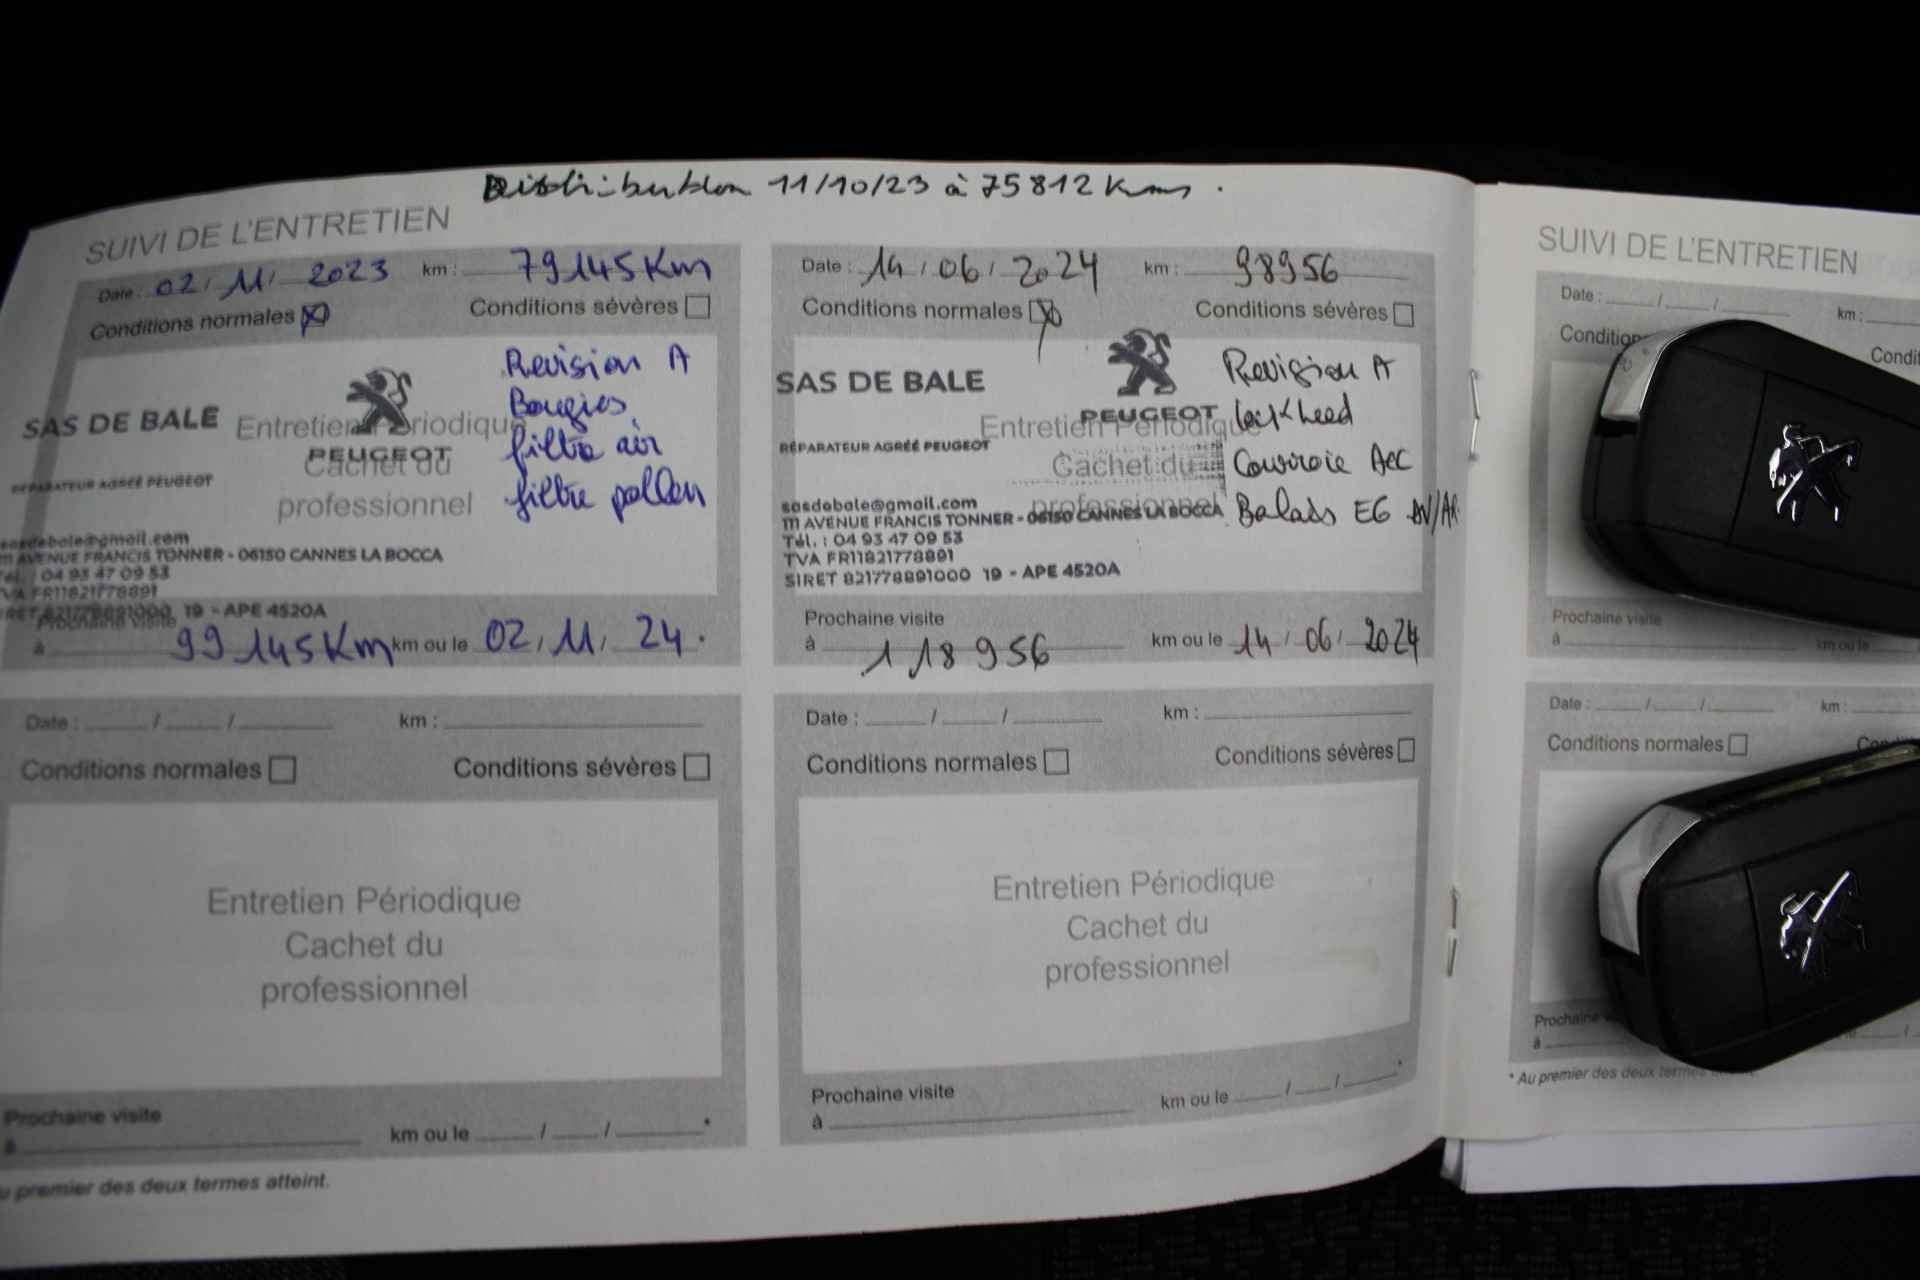 Distribution 11/10/23 à 75812 Kms.
SUIVI DE L'ENTRETIEN
Date : 02 / 11 / 2023 km : 79145 Km
Conditions normales Conditions sévères
Revision A
Bougies
filtre air
filtre pollen
SAS DE BALE
PEUGEOT
RÉPARATEUR AGRÉÉ PEUGEOT
Entretien Périodique
Cachet du
professionnel
sasdebale@gmail.com
111 AVENUE FRANCIS TONNER - 06150 CANNES LA BOCCA
Tél. : 04 93 47 09 53
TVA FR11821778891
SIRET 821778891000 19 - APE 4520A
Prochaine visite
à 99145 Km km ou le 02 / 11 / 24 .
Date : / / km :
Conditions normales Conditions sévères
Entretien Périodique
Cachet du
professionnel
Prochaine visite
à km ou le / / *
u premier des deux termes atteint.
Date : 14 / 06 / 2024 km : 98956
Conditions normales Conditions sévères
Revision A
lockheed
Courroie Acc
Balais EG AV/AR
SAS DE BALE
PEUGEOT
RÉPARATEUR AGRÉÉ PEUGEOT
Entretien Périodique
Cachet du
professionnel
sasdebale@gmail.com
111 AVENUE FRANCIS TONNER - 06150 CANNES LA BOCCA
Tél. : 04 93 47 09 53
TVA FR11821778891
SIRET 821778891000 19 - APE 4520A
Prochaine visite
à 118956 km ou le 14 / 06 / 2024
Date : / / km :
Conditions normales Conditions sévères
Entretien Périodique
Cachet du
professionnel
Prochaine visite
à km ou le / / *
SUIVI DE L'ENTRETIEN
Date : / / km :
Prochaine visite
à km ou le
Date : / / km :
Conditions normales
Prochaine
à
* Au premier des deux termes